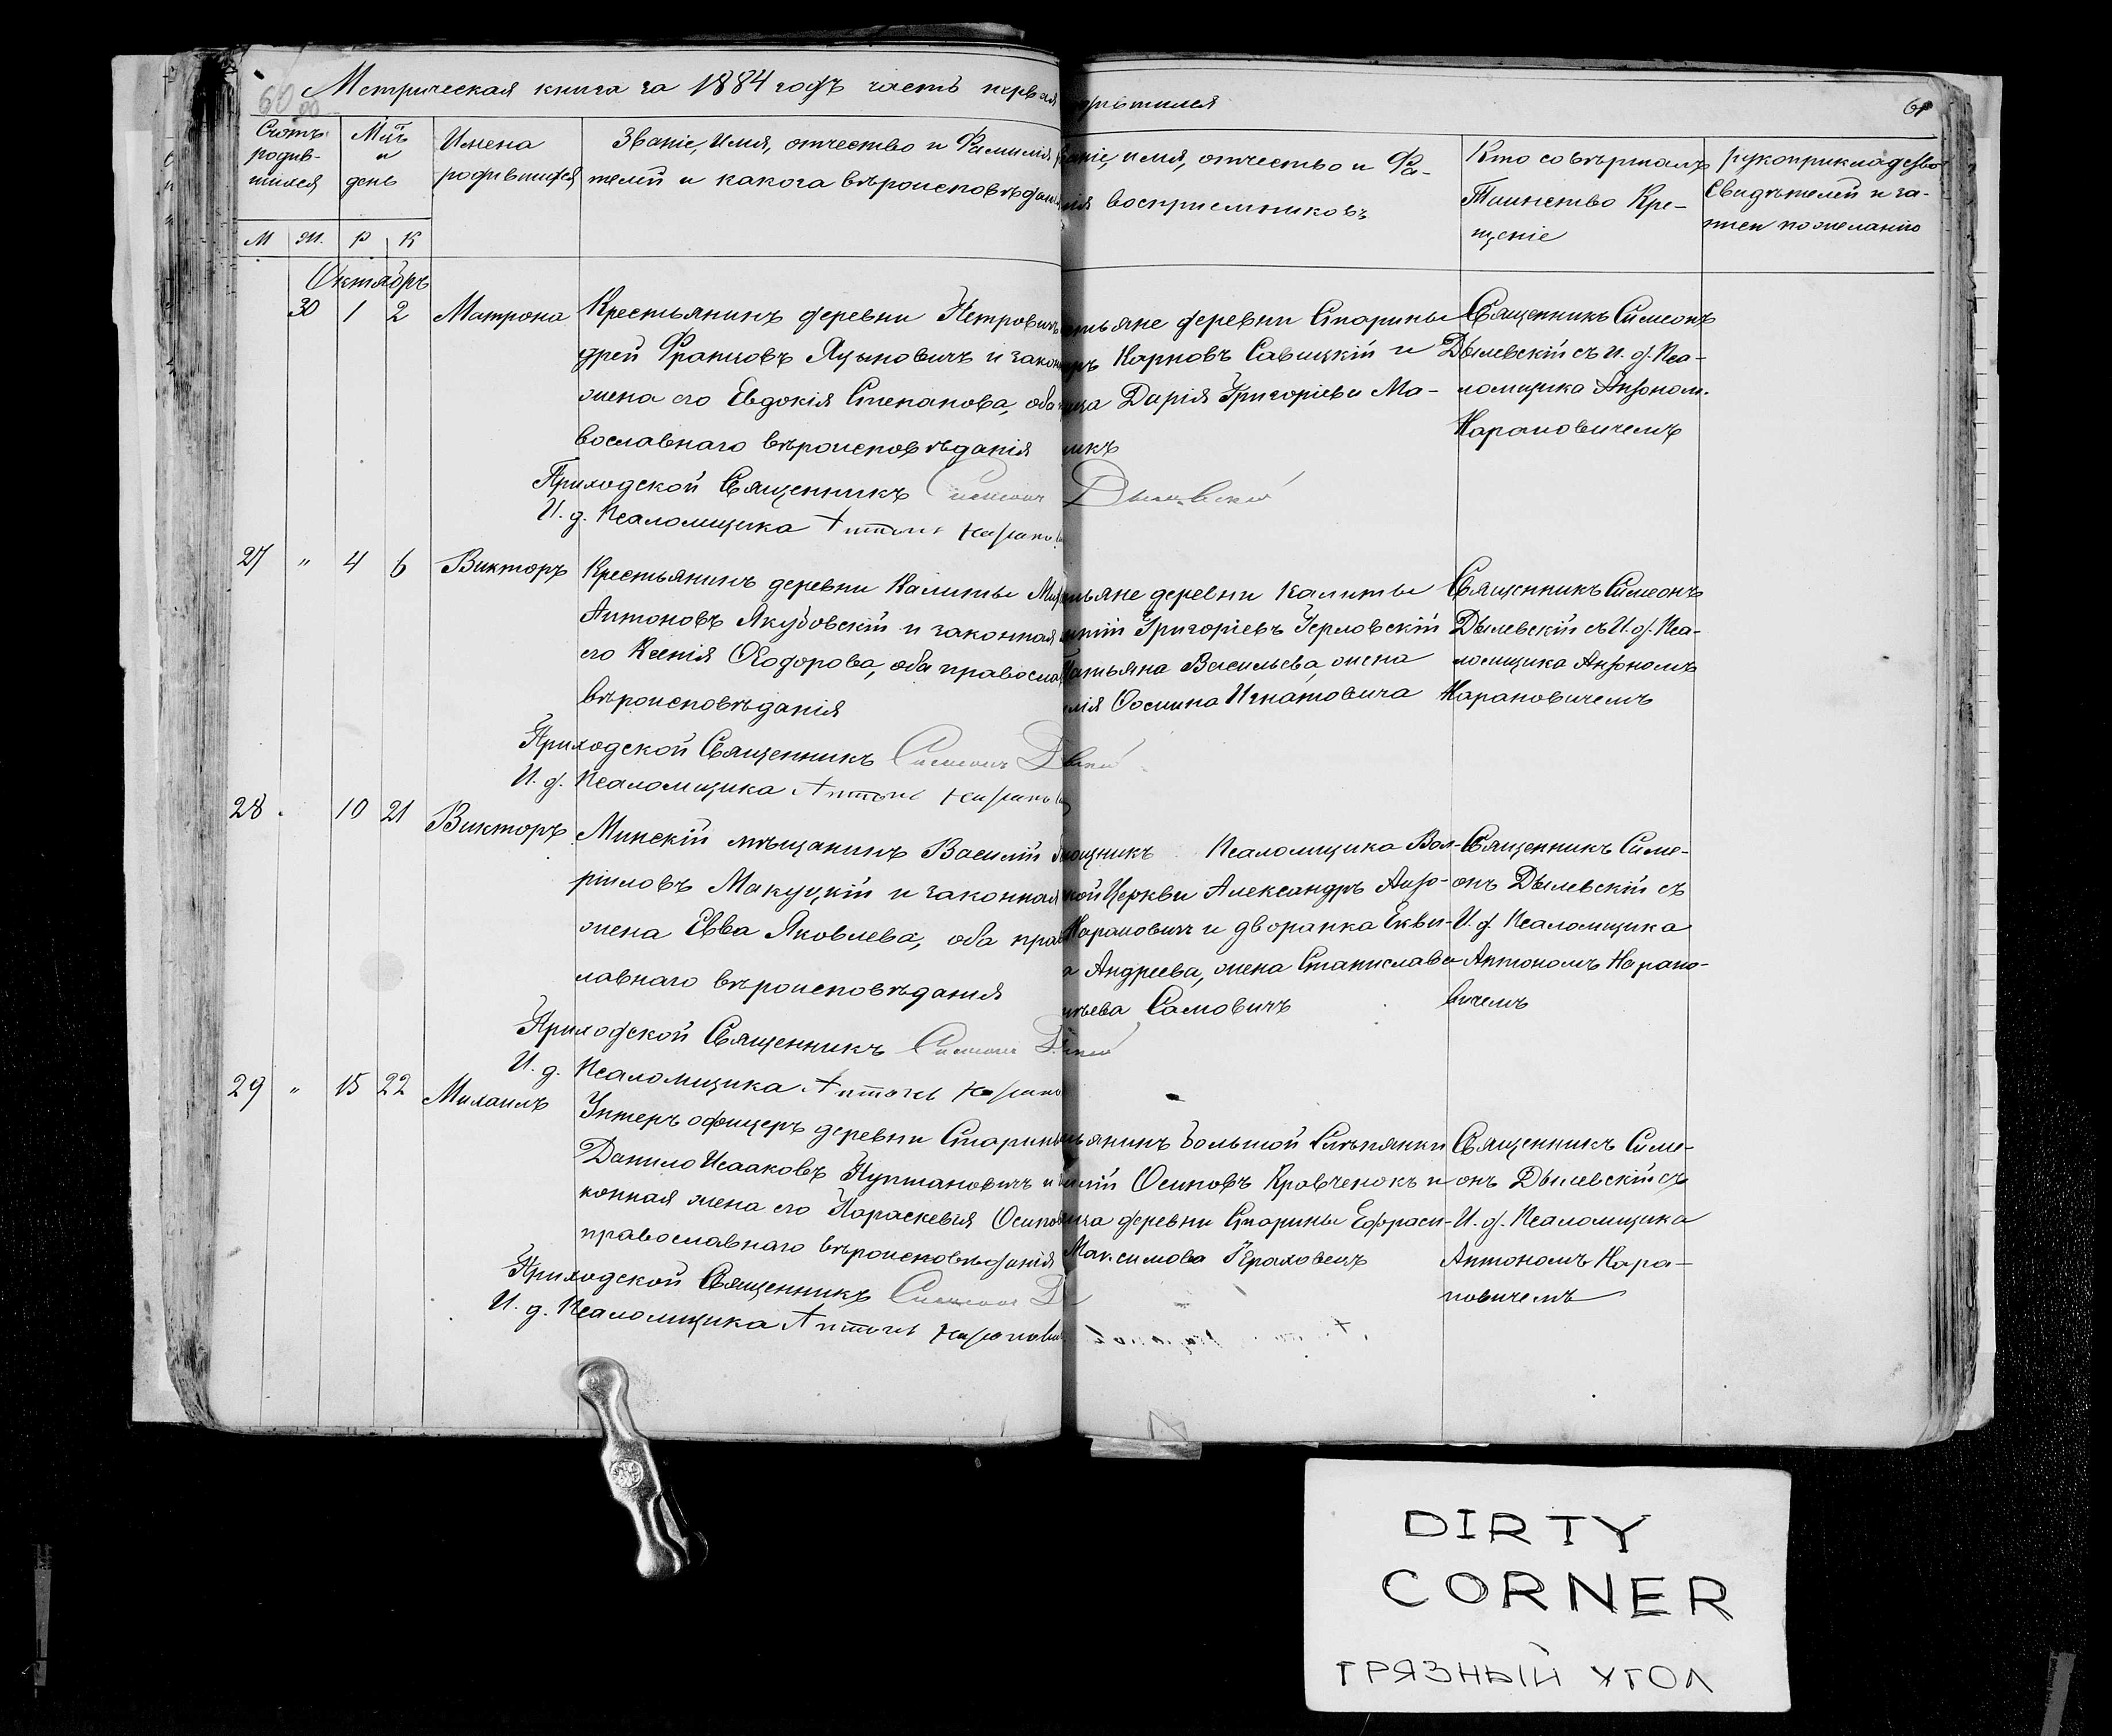 Метрическая книга за 1884 годъ часть первая
60
61
Счотъ
родив-
шихся
М
Ж.
Мцъ
и
день
Р
К
Имена
родившихся
Званіе, Имя, отчество и Фамилія
телей и какога вѣроисповѣданія
имя, отчество и Фа-
воспріемниковъ
Кто совѣршалъ
Таинство Кре-
щеніе
рукоприкладство
Свидѣтелей и за-
писи по желанію
Октябрь
30 1 2
Матрона
Крестьянинъ деревни Петровичъ
дрей Францовъ Яцыновичъ и закон
жена его Евдокія Степанова, оба
вославнаго вѣроисповѣданія
тьяне деревни Старины
Карповъ Савицкій и
Дарія Григоріева Ма-
Священникъ Симеонъ
Дылевскій съ И. д. Пса-
ломщика Антоном.
Нарановичемъ
Приходской Священникъ Симеон Дылевскій
И. д. Псаломщика Антонъ
27 " 4 6
Викторъ
Крестьянинъ деревни Калиты
Антоновъ Якубовскій и законная
его Ксенія Ѳеодорова, оба правосла
вѣроисповѣданія
тьяне деревни Калиты
Григоріевъ Герловскій
Татьяна Васильева, жена
Игнатовича
Священникъ Симеонъ
Дылевскій съ И. д. Пса-
ломщика Антономъ
Нарановичемъ
Приходской Священникъ Симеонъ
И. д. Псаломщика Антонъ
28 10 21
Викторъ
Минскій мѣщанинъ Василій
риловъ Макуцкій и законная
жена Евва Яковлева, оба прав
лавнаго вѣроисповѣданія
мощникъ Псаломщика Вол-
кой Церкви Александръ Анто-
Нарановичъ и дворанка Екви-
Андреева, жена Станислава
Самовичъ
Священникъ Симе-
онъ Дылевскій съ
И. д. Псаломщика
Антономъ Нарано-
вичемъ
Приходской Священникъ Симеонъ
И. д. Псаломщика Антонъ
29 " 15 22
Михаилъ
Унтеръ офицеръ деревни Старины
Данило Исааковъ и
конная жена его Параскевія Осипов
православнаго вѣроисповѣданія
янинъ Большой Слѣпянки
Осиповъ Кравченокъ и
деревни Старины Ефраси-
Максимова
Священникъ Симе-
онъ Дылевскій съ
И. д. Псаломщика
Антономъ Нара-
новичемъ
Приходской Священникъ Симеонъ
И. д. Псаломщика Антонъ
DIRTY
CORNER
ГРЯЗНЫЙ УГОЛ